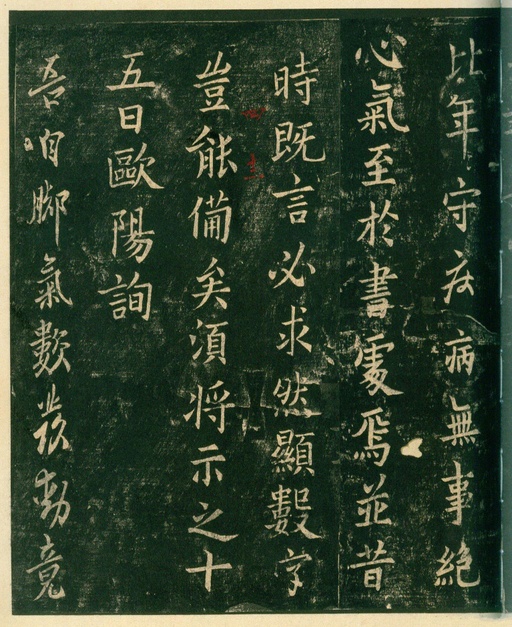 比年守疾病無事絶
心氣至於書處焉並昔
時既言必求然顯數字
豈能備矣須將示之十
五日歐陽詢
吾自脚氣數發動竟